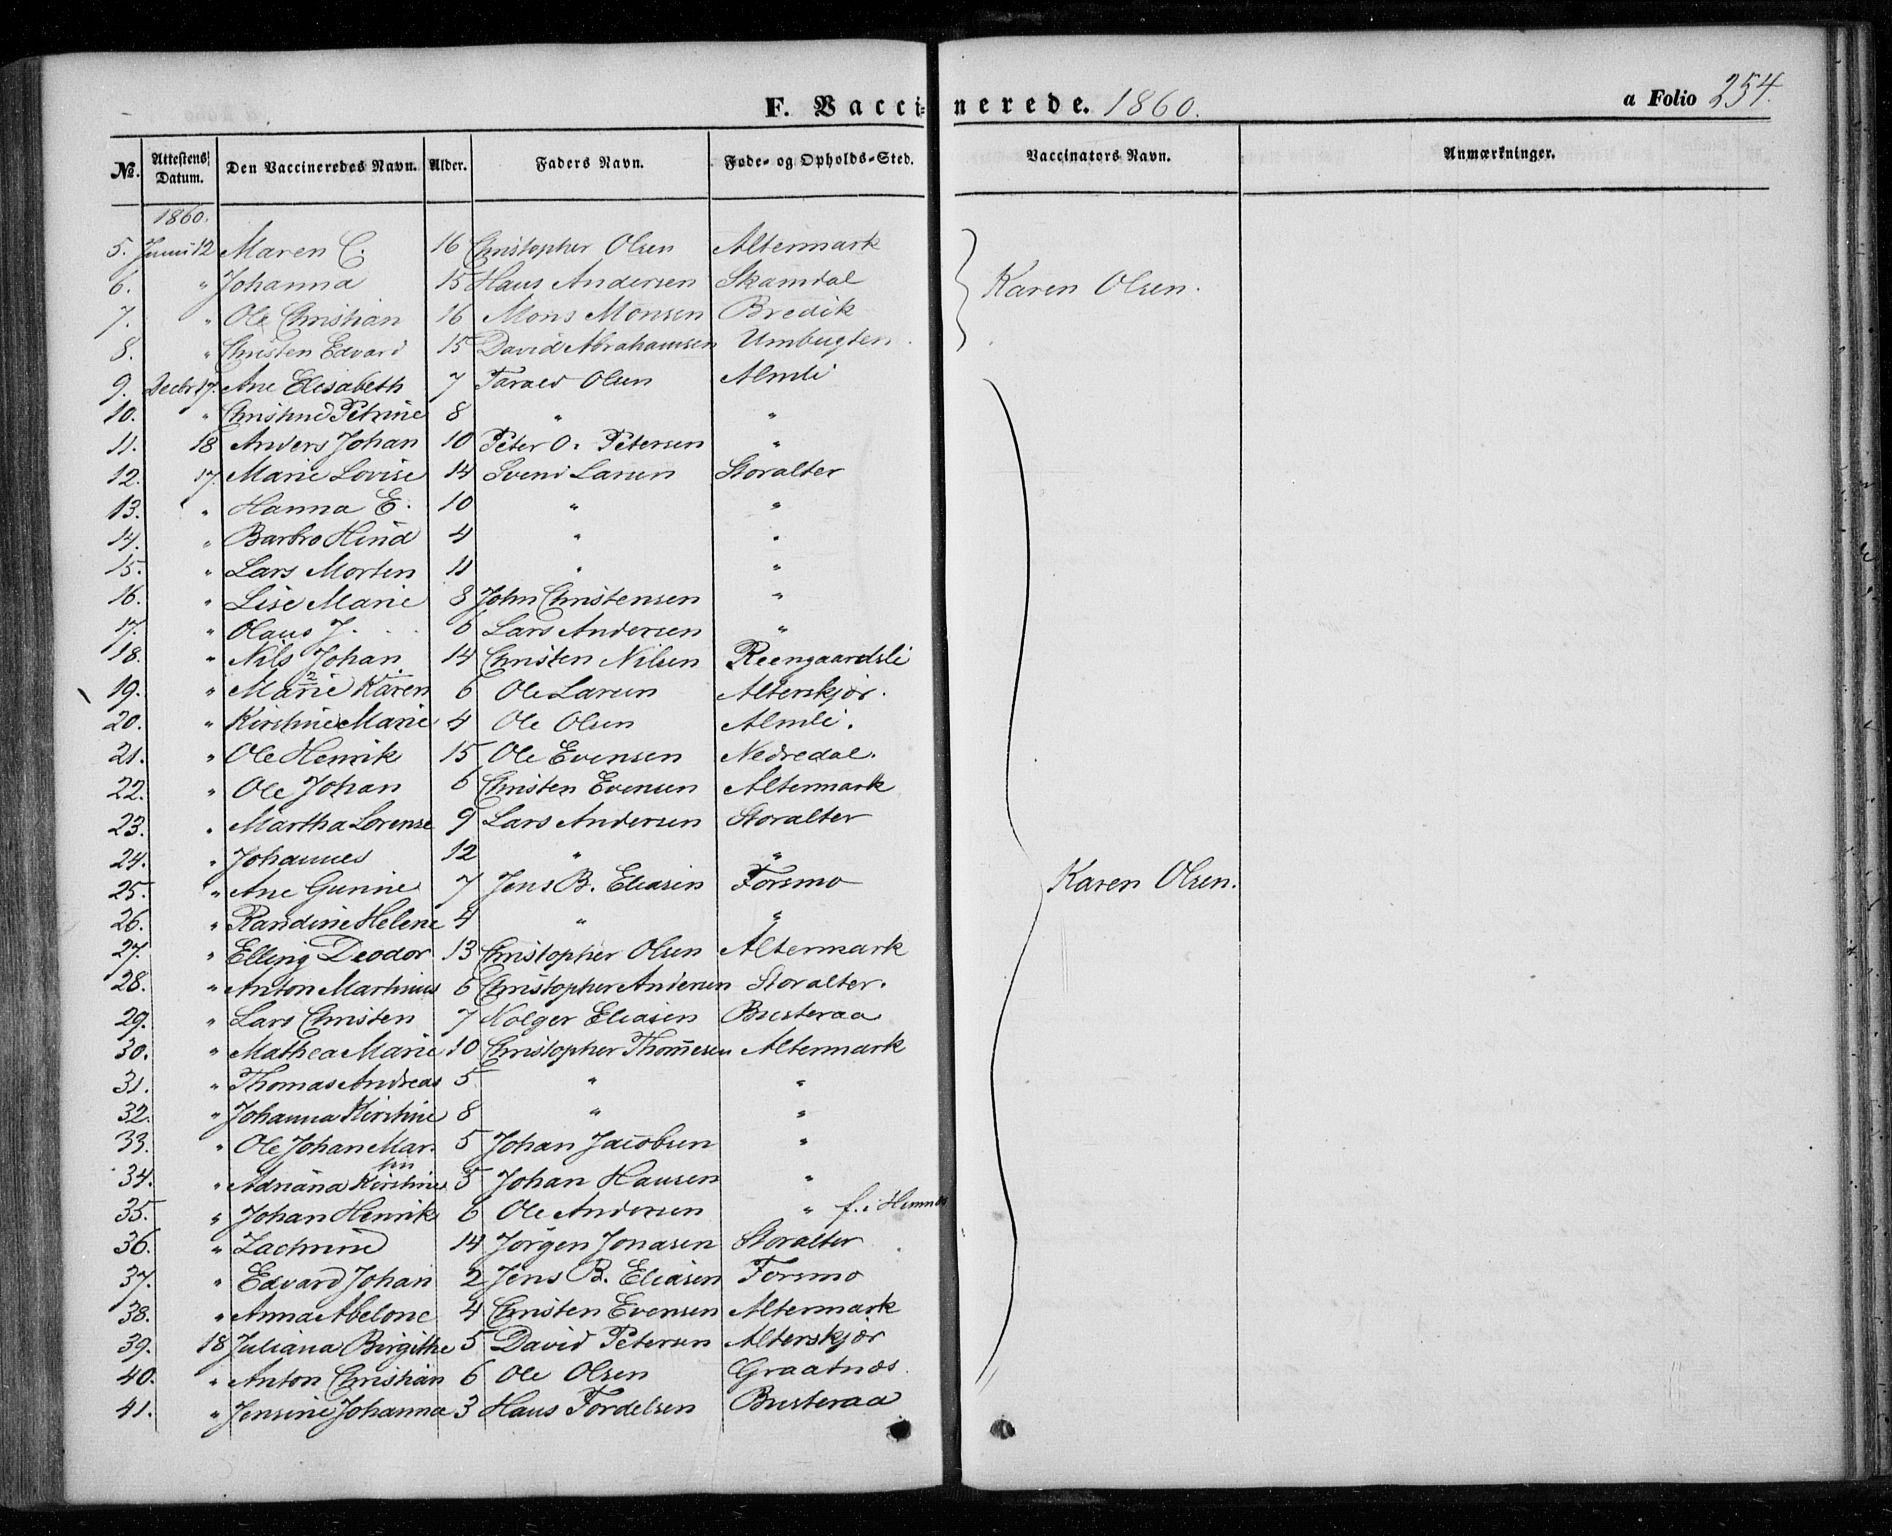 F. Vaccinerede. 1860. a Folio 254.
No. Attestens Datum. Den Vaccineredes Navn. Alder. Faders Navn. Føde- og Opholds-Sted. Vaccinators Navn. Anmærkninger.
1860.
5. Juni 12 Maren C. 16 Christopher Olsen Altermark
6. " Johanna 15 Hans Andersen Skamdal Karen Olsen.
7. " Ole Christian 16 Mons Monsen Bredik
8. " Christen Edvard 15 David Abrahamsen Umbugten.
9. Decbr 17. Ane Elisabeth 7 Tarald Olsen Almli
10. " Christine Petrine 8 " "
11. 18 Anders Johan 10 Peter O. Petersen "
12. 17. Marie Lovise 14 Svend Larsen Storalter
13. " Hanna E. 10 " "
14. " Barbro Hind 4 " "
15. " Lars Morten 11 " "
16. " Lise Marie 8 John Christensen "
17. " Olaus J. 6 Lars Andersen "
18. " Nils Johan 14 Christen Nilsen Reengaardsli
19. " Marie Karen 6 Ole Larsen Alterskjør.
20. " Kirstine Marie 4 Ole Olsen Almli.
21. " Ole Henrik 15 Ole Evensen Nedredal.
22. " Ole Johan 6 Christen Evensen Altermark
23. " Martha Lorense 9 Lars Andersen Storalter
24. " Johannes 12 " "
25. " Ane Gurine 7 Jens B. Eliasen Forsmo Karen Olsen.
26. " Randine Helene 4 " "
27. " Elling Deodor 13 Christopher Olsen Altermark
28. " Anton Martinus 6 Christopher Andersen Storalter.
29. " Lars Christen 7 Holger Eliasen Busteraa
30. " Mathea Marie 10 Christopher Thommesen Altermark
31. " Thomas Andreas 5 " "
32. " Johanna Kirstine 8 " "
33. " Ole Johan Mar- 5 Johan Jacobsen "
tin
34. " Adriana Kirstine 5 Johan Hansen "
35. " Johan Henrik 6 Ole Andersen " f. i Hemnes
36. " Zachrine 14 Jørgen Jonasen Storalter
37. " Edvard Johan 2 Jens B. Eliasen Forsmo
38. " Anna Abelone 4 Christen Evensen Altermark
39. 18 Juliana Birgithe 5 David Petersen Alterskjør
40. " Anton Christian 6 Ole Olsen Graatnæs.
41. " Jensine Johanna 3 Hans Tordelsen Busteraa